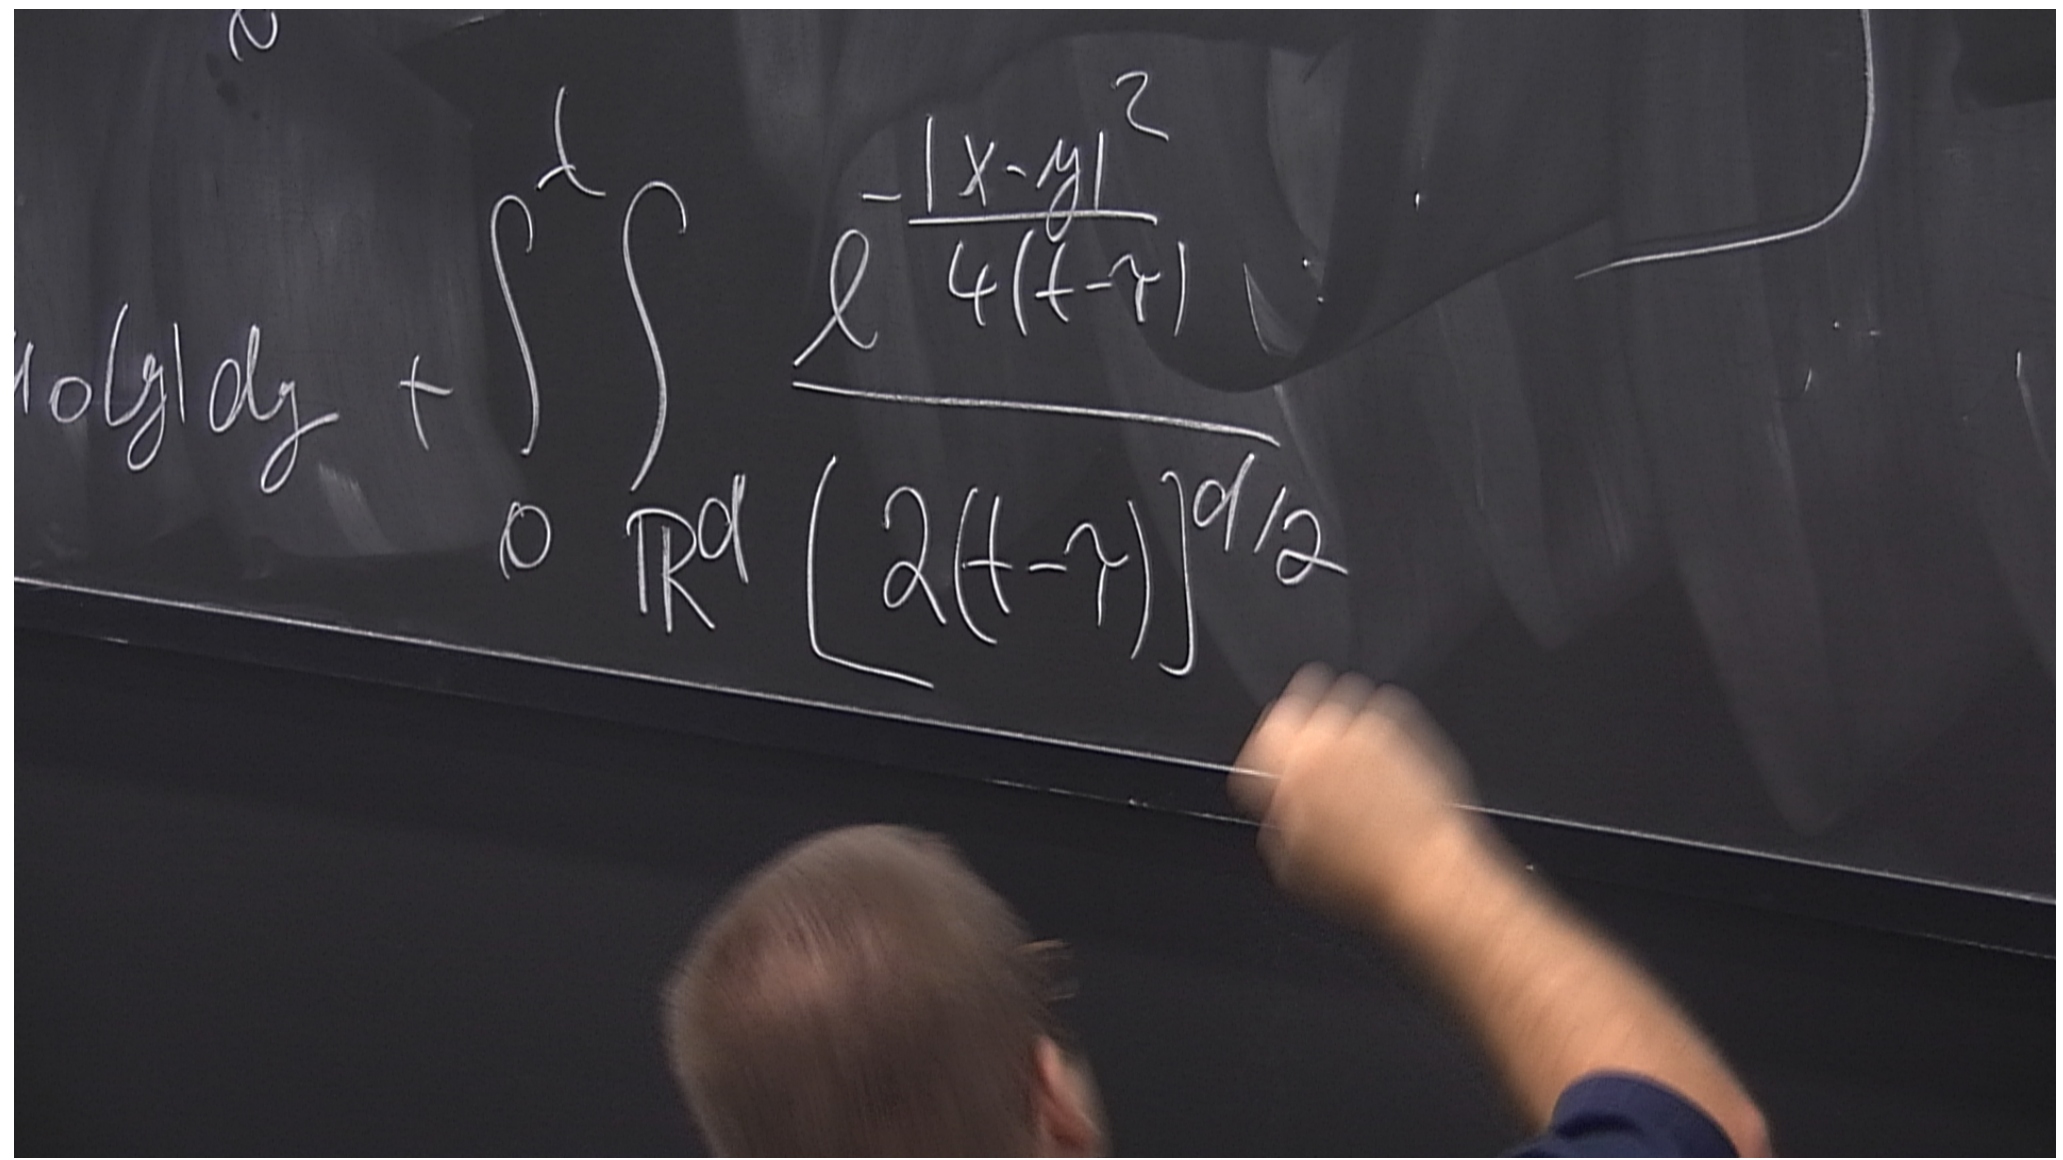 u_0(y) dy + \int_0^t \int_{\mathbb{R}^d} \frac{e^{-\frac{|x-y|^2}{4(t-\tau)}}}{[2(t-\tau)]^{d/2}}